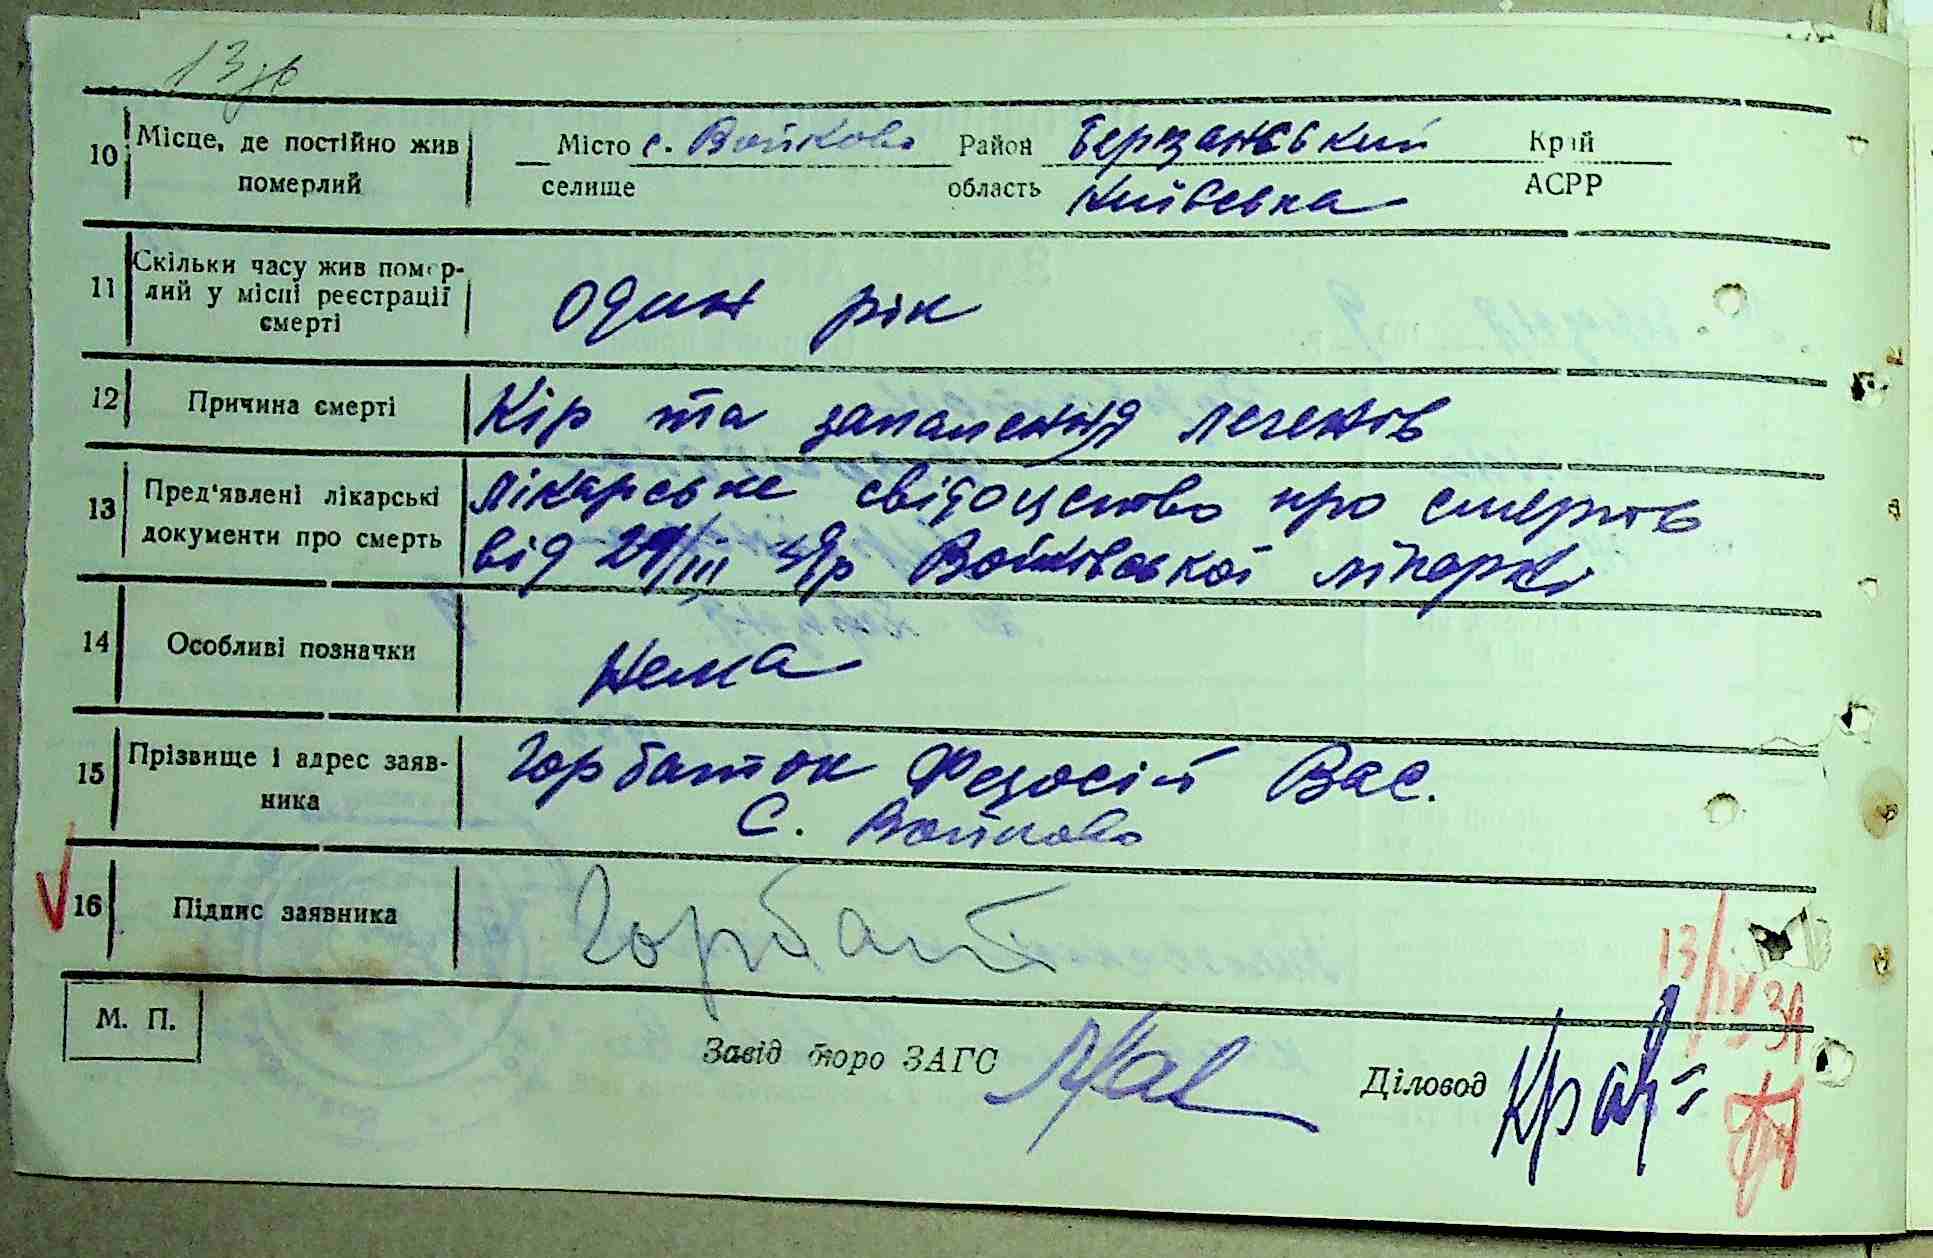 13
10 Місце, де постійно жив померлий Місто с. Войково Район Березанський Край
селище область Київська АСРР
11 Скільки часу жив помер-
лий у місці реєстрації
смерті
один рік
12 Причина смерті Кір та запалення легенів
13 Пред'явлені лікарські
документи про смерть
лікарське свідоцство про смерть
від 29/III 39р Войківської лікарні
14 Особливі позначки нема
15 Прізвище і адрес заяв-
ника
Горбаток Федосій Вас.
С. Войково
16 Підпис заявника Горбат
13/IV 39
М. П.
Завід бюро ЗАГС Діловод